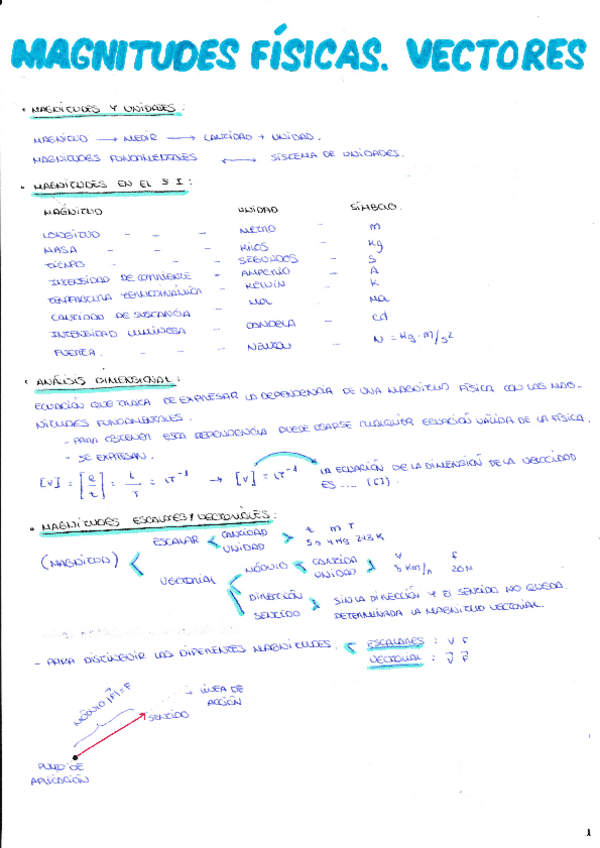 MAGNITUDES FÍSICAS. VECTORES
• MAGNITUDES Y UNIDADES:
MAGNITUD → MEDIR → CANTIDAD + UNIDAD.
MAGNITUDES FUNDAMENTALES ↔ SISTEMA DE UNIDADES.
• MAGNITUDES EN EL S I:
MAGNITUD UNIDAD SÍMBOLO.
LONGITUD - - - METRO - m
MASA - - - KILOS - kg
TIEMPO - - - SEGUNDOS - s
INTENSIDAD DE CORRIENTE - AMPERIO - A
TEMPERATURA TERMODINÁMICA - KELVIN - K
CANTIDAD DE SUSTANCIA - MOL - MOL
INTENSIDAD LUMINOSA - CANDELA - cd
FUERZA. - - - NEWTON - N = kg·m/s²
• ANÁLISIS DIMENSIONAL:
ECUACIÓN QUE TRATA DE EXPRESAR LA DEPENDENCIA DE UNA MAGNITUD FÍSICA CON LAS MAG-
NITUDES FUNDAMENTALES.
- PARA OBTENER ESTA DEPENDENCIA PUEDE USARSE CUALQUIER ECUACIÓN VÁLIDA DE LA FÍSICA.
- SE EXPRESAN.
[v] = [e/t] = L/T = LT⁻¹ → [v] = LT⁻¹ LA ECUACIÓN DE LA DIMENSIÓN DE LA VELOCIDAD
ES .... (LT).
• MAGNITUDES ESCALARES Y VECTORIALES:
(MAGNITUD)
ESCALAR < CANTIDAD UNIDAD > t m T
5s 4kg 243K
VECTORIAL
MÓDULO < CANTIDA UNIDAD > v F
3 Km/h 20N
DIRECCIÓN
SENTIDO
SIN LA DIRECCIÓN Y EL SENTIDO NO QUEDA
DETERMINADA LA MAGNITUD VECTORIAL.
- PARA DISTINGUIR LAS DIFERENTES MAGNITUDES. < ESCALARES : V F
VECTORIAL : V⃗ F⃗
MÓDULO |F⃗|=F
LÍNEA DE
ACCIÓN
SENTIDO
PUNTO DE
APLICACIÓN
1